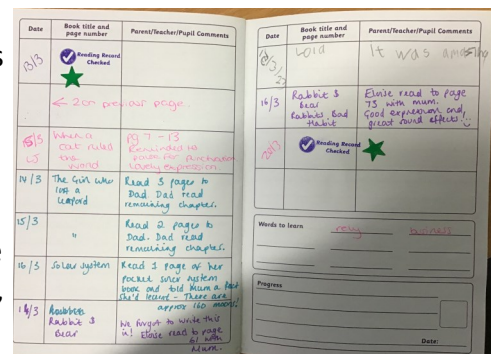 Date
Book title and page number
Parent/Teacher/Pupil Comments
13/3
Reading Record Checked
← 2 on previous page.
15/3
CJ
When a cat ruled the world
pg 7 - 13
Reminded to pause for punctuation
Lovely expression.
14/3
The Girl who lost a leapord
Read 3 pages to Dad. Dad read remaining chapter.
15/3
"
Read 2 pages to Dad. Dad read remaining chapter.
16/3
Solar system
Read 1 page of her pocket solar system book and told Mum a fact she'd learnt - There are approx 160 moons!
Rabbit &
Bear
We forgot to write this in! Eloise read to page 61 with Mum.
Date
Book title and page number
Parent/Teacher/Pupil Comments
It was amazing
16/3
Rabbit & Bear
Rabbits Bad Habit
Eloise read to page 73 with mum.
Good expression and great sound effects.
20/3
Reading Record Checked
Words to learn
rely
business
Progress
Date: